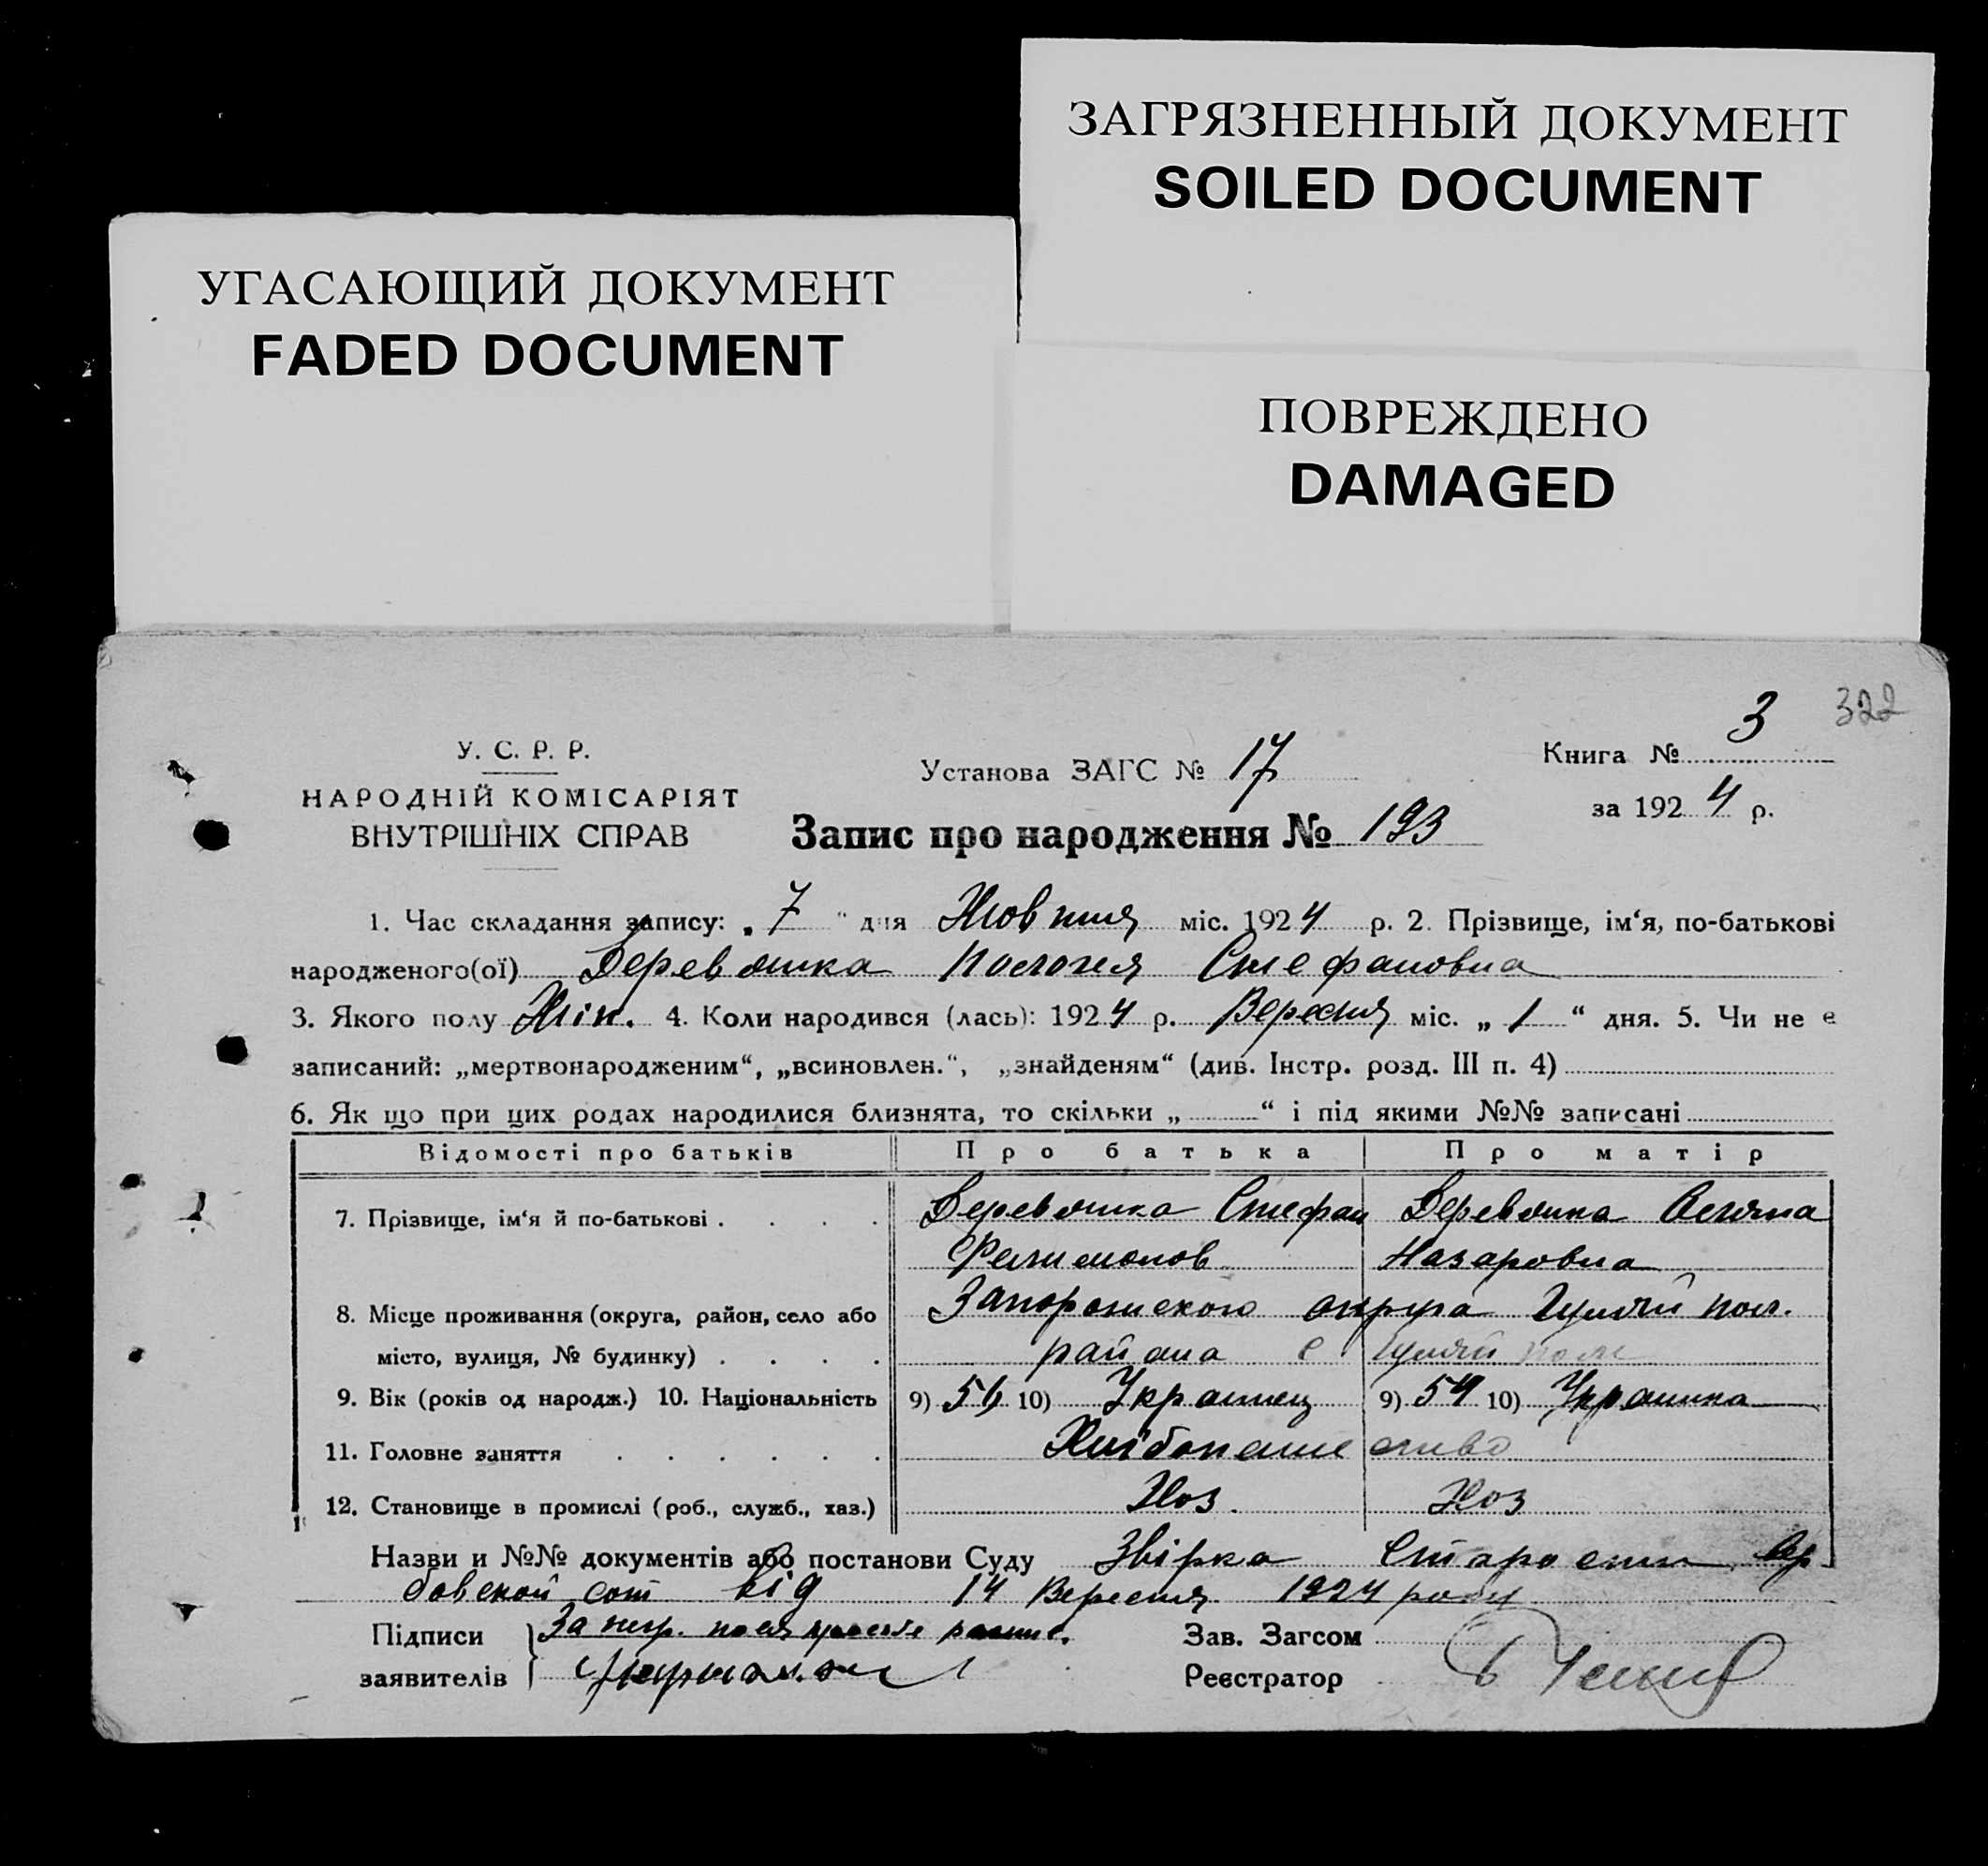 ЗАГРЯЗНЕННЫЙ ДОКУМЕНТ
SOILED DOCUMENT
УГАСАЮЩИЙ ДОКУМЕНТ
FADED DOCUMENT
ПОВРЕЖДЕНО
DAMAGED
322
У. С. Р. Р.
НАРОДНІЙ КОМІСАРІЯТ
ВНУТРІШНІХ СПРАВ
Установа ЗАГС № 17
Книга № 3
за 1924 р.
Запис про народження № 193
1. Час складання запису: „7“ дня Жовтня міс. 1924 р. 2. Прізвище, ім‘я, по-батькові
народженого(ої) Деревянка Пологея Стефановна
3. Якого полу Жін. 4. Коли народився (лась): 1924 р. Вересня міс. „1“ дня. 5. Чи не є
записаний: „мертвонародженим“, „всиновлен.“, „знайденям“ (див. Інстр. розд. III п. 4)
6. Як що при цих родах народилися близнята, то скільки „ “ і під якими №№ записані
Відомості про батьків Про батька Про матір
7. Прізвище, ім‘я й по-батькові . . . . Деревянка Стефан Деревянка
Филимонов Назаровна
8. Місце проживання (округа, район, село або Запорожского округа Гуляй пол.
місто, вулиця, № будинку) . . . . района с Гуляй поле
9. Вік (років од народж.) 10. Національність 9) 56 10) Украинец 9) 54 10) Украинка
11. Головне заняття . . . . . . Хлібопаше ство
12. Становище в промислі (роб., служб., хаз.) Хоз. Хоз
Назви и №№ документів або постанови Суду Звірка Старости
сот від 14 Вересня 1924 року
Підписи За негр.
заявителів
Зав. Загсом
Реєстратор